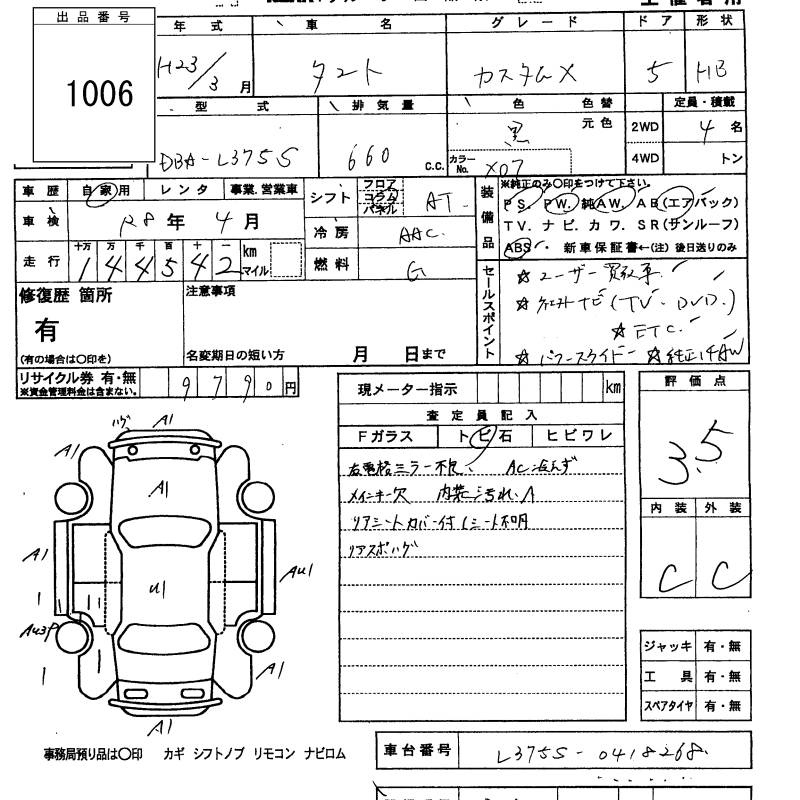 出品番号
1006
年式 車名 グレード ドア 形状
H23/3月 タント カスタムX 5 HB
型式 排気量 色 色替 定員・積載
DBA-L375S 660 C.C. 黒 元色 2WD 4名
カラーNo. X07 4WD トン
車歴 自家用 レンタ 事業.営業車
車検 R8年 4月
走行 十万 万 千 百 十 一 km マイル
1 4 4 5 4 2
シフト フロア コラム パネル AT
冷房 AAC
燃料 G
装備品 ※純正のみ〇印をつけて下さい。
PS. PW. 純AW. AB(エアバック)
TV. ナビ. カワ. SR(サンルーフ)
ABS 新車保証書←(注)後日送りのみ
修復歴 箇所
有
(有の場合は〇印を)
注意事項
名変期日の短い方 月 日まで
セールスポイント
☆ユーザー買取車
(TV・DVD.)
☆ETC.
☆パワースライドドー ☆純正14AW
リサイクル券 有・無 9790円
※資金管理料金は含まない。
現メーター指示 km
査定員記入
Fガラス トビ石 ヒビワレ
右電格ミラー不良、 AC冷えんず
メインキー欠 内装汚れ.A
リアシートカバー付(シート不明
リアスポハゲ
評価点
3.5
内装 外装
C C
ジャッキ 有・無
工具 有・無
スペアタイヤ 有・無
ハゲ A1
A1
A1
A1
U1
AU1
AU3P
A1
A1
事務局預り品は〇印 カギ シフトノブ リモコン ナビロム
車台番号 L375S-0418268